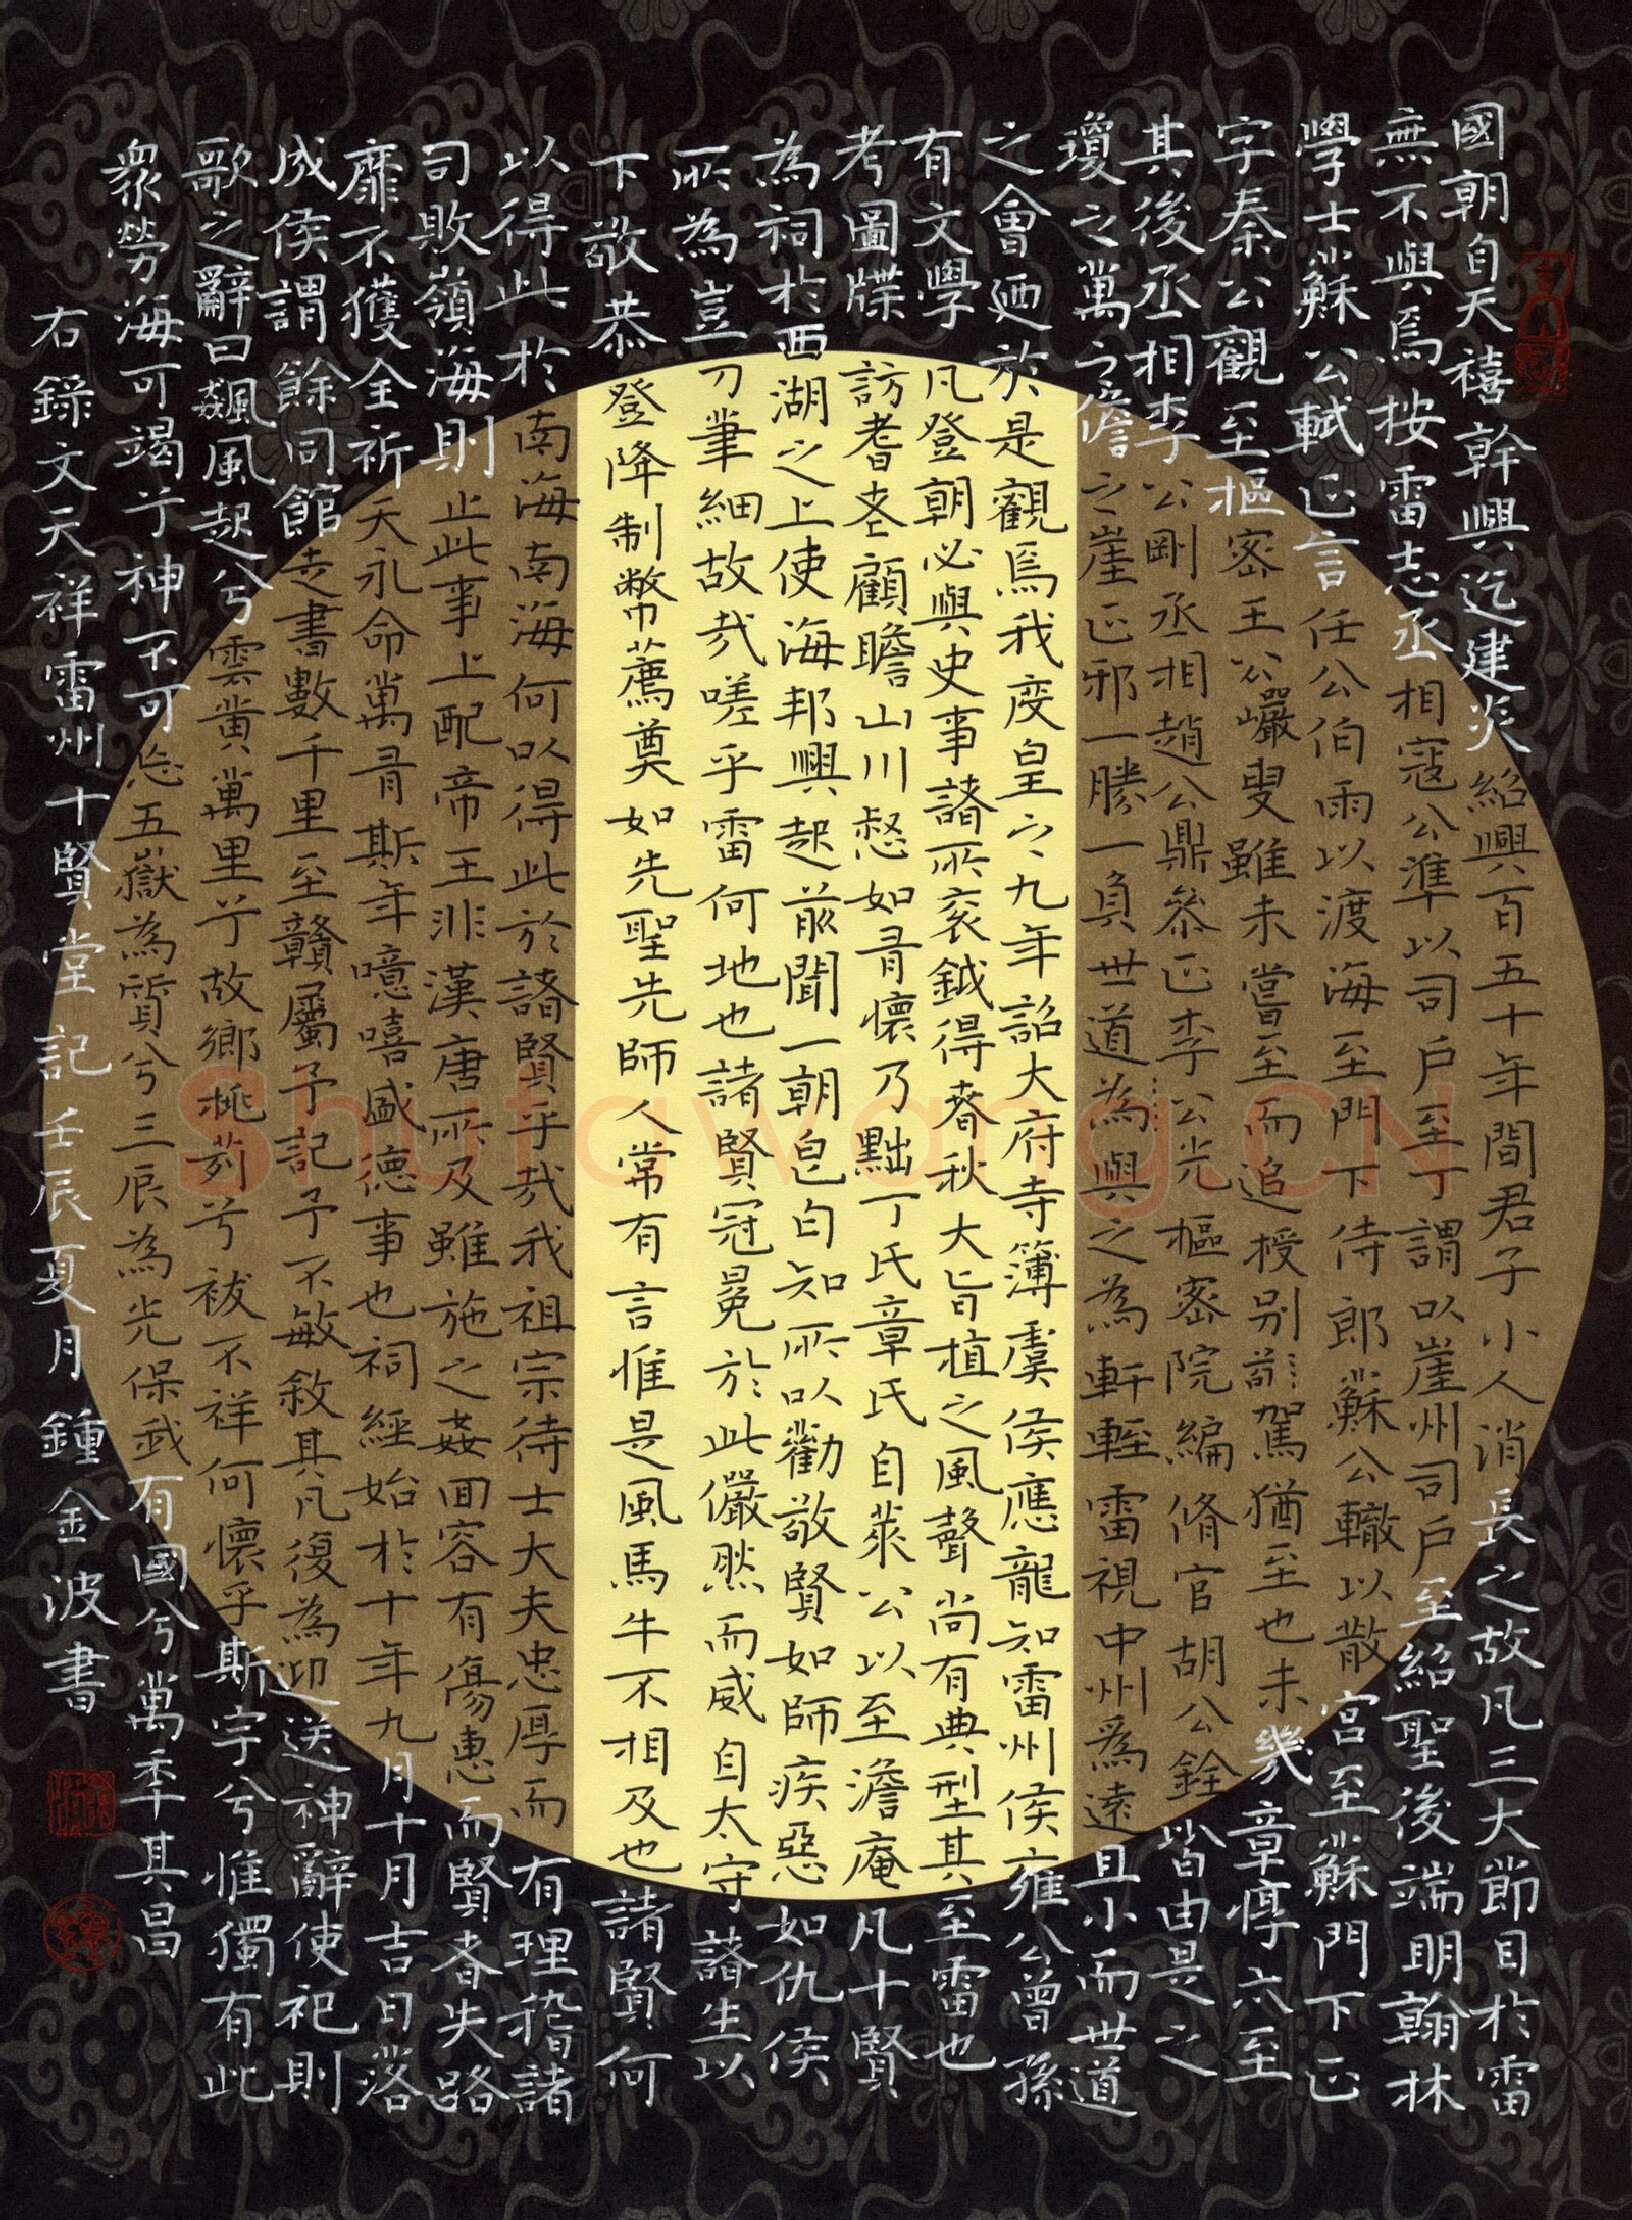 國朝自天禧幹興迄建炎紹興百五十年間君子小人消長之故凡三大節目於雷
無不與焉按雷志丞相寇公準以司戶至丁謂以崖州司戶至紹聖後端明翰林
學士蘇公軾正言任公伯雨以渡海至門下侍郎蘇公轍以散官至蘇門下正
字秦公觀至樞密王公巖叟雖未嘗至而追授別駕猶至也未幾章惇亦至
其後丞相李公剛丞相趙公鼎參正李公光樞密院編脩官胡公銓皆由是之
瓊之萬之儋之崖正邪一勝一負世道為與之為軒輊雷視中州為遠且小而世道
之會迺於是觀焉我度皇之九年詔大府寺簿虞侯應龍知雷州侯雍公曾孫
有文學凡登朝必與史事諸所袞鉞得春秋大旨植之風聲尚有典型其至雷也
考圖牒訪耆耋顧瞻山川惄如有懷乃黜丁氏章氏自萊公以至澹庵凡十賢
為祠於西湖之上使海邦興起前聞一朝皂白知所以勸敬賢如師疾惡如仇侯
所為豈刀筆細故哉嗟乎雷何地也諸賢冠冕於此儼然而威自太守諸生以
下敬恭登降制幣薦奠如先聖先師人常有言惟是風馬牛不相及也諸賢何
以得此於南海南海何以得此於諸賢乎哉我祖宗待士大夫忠厚而有理稽諸
司敗嶺海則止此事上配帝王非漢唐所及雖施之姦回容有傷惠而賢者失路
靡不獲全祈天永命萬有斯年噫嘻盛德事也祠經始於十年九月十月吉日落
成侯謂餘同館走書數千里至贛屬予記予不敏敘其凡復為迎送神辭使祀則
歌之辭曰飆風起兮雲黃萬里兮故鄉桃茢兮祓不祥何懷乎斯宇兮惟獨有此
眾勞海可竭兮神不可忘五嶽為質兮三辰為光保我有國兮萬年其昌
右錄文天祥雷州十賢堂記壬辰夏月鍾金波書
Shufawang.CN